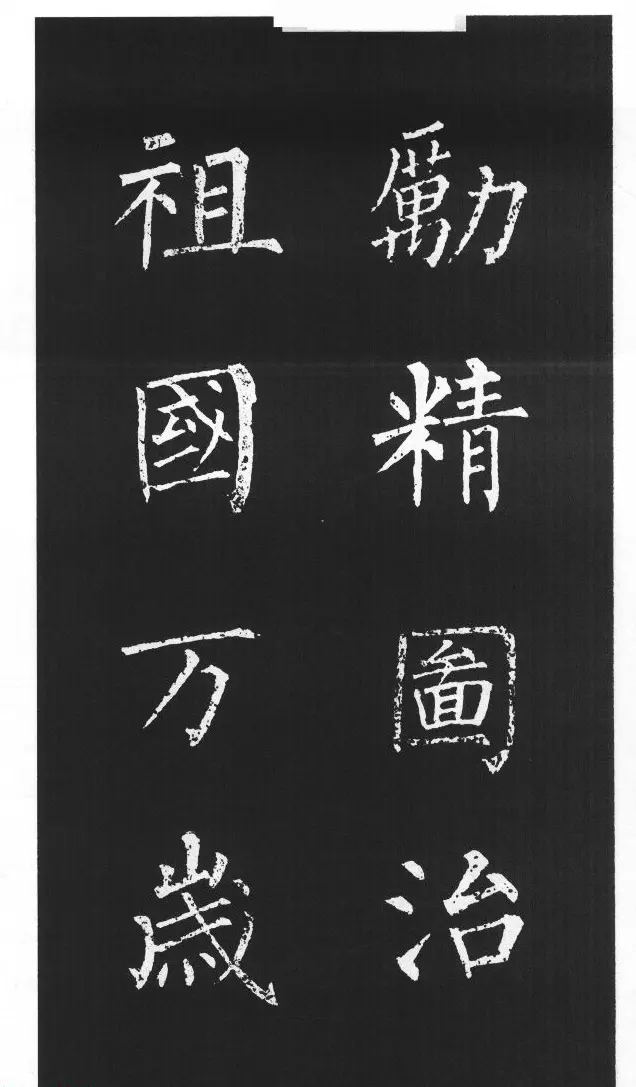 勵精圖治
祖國万歲